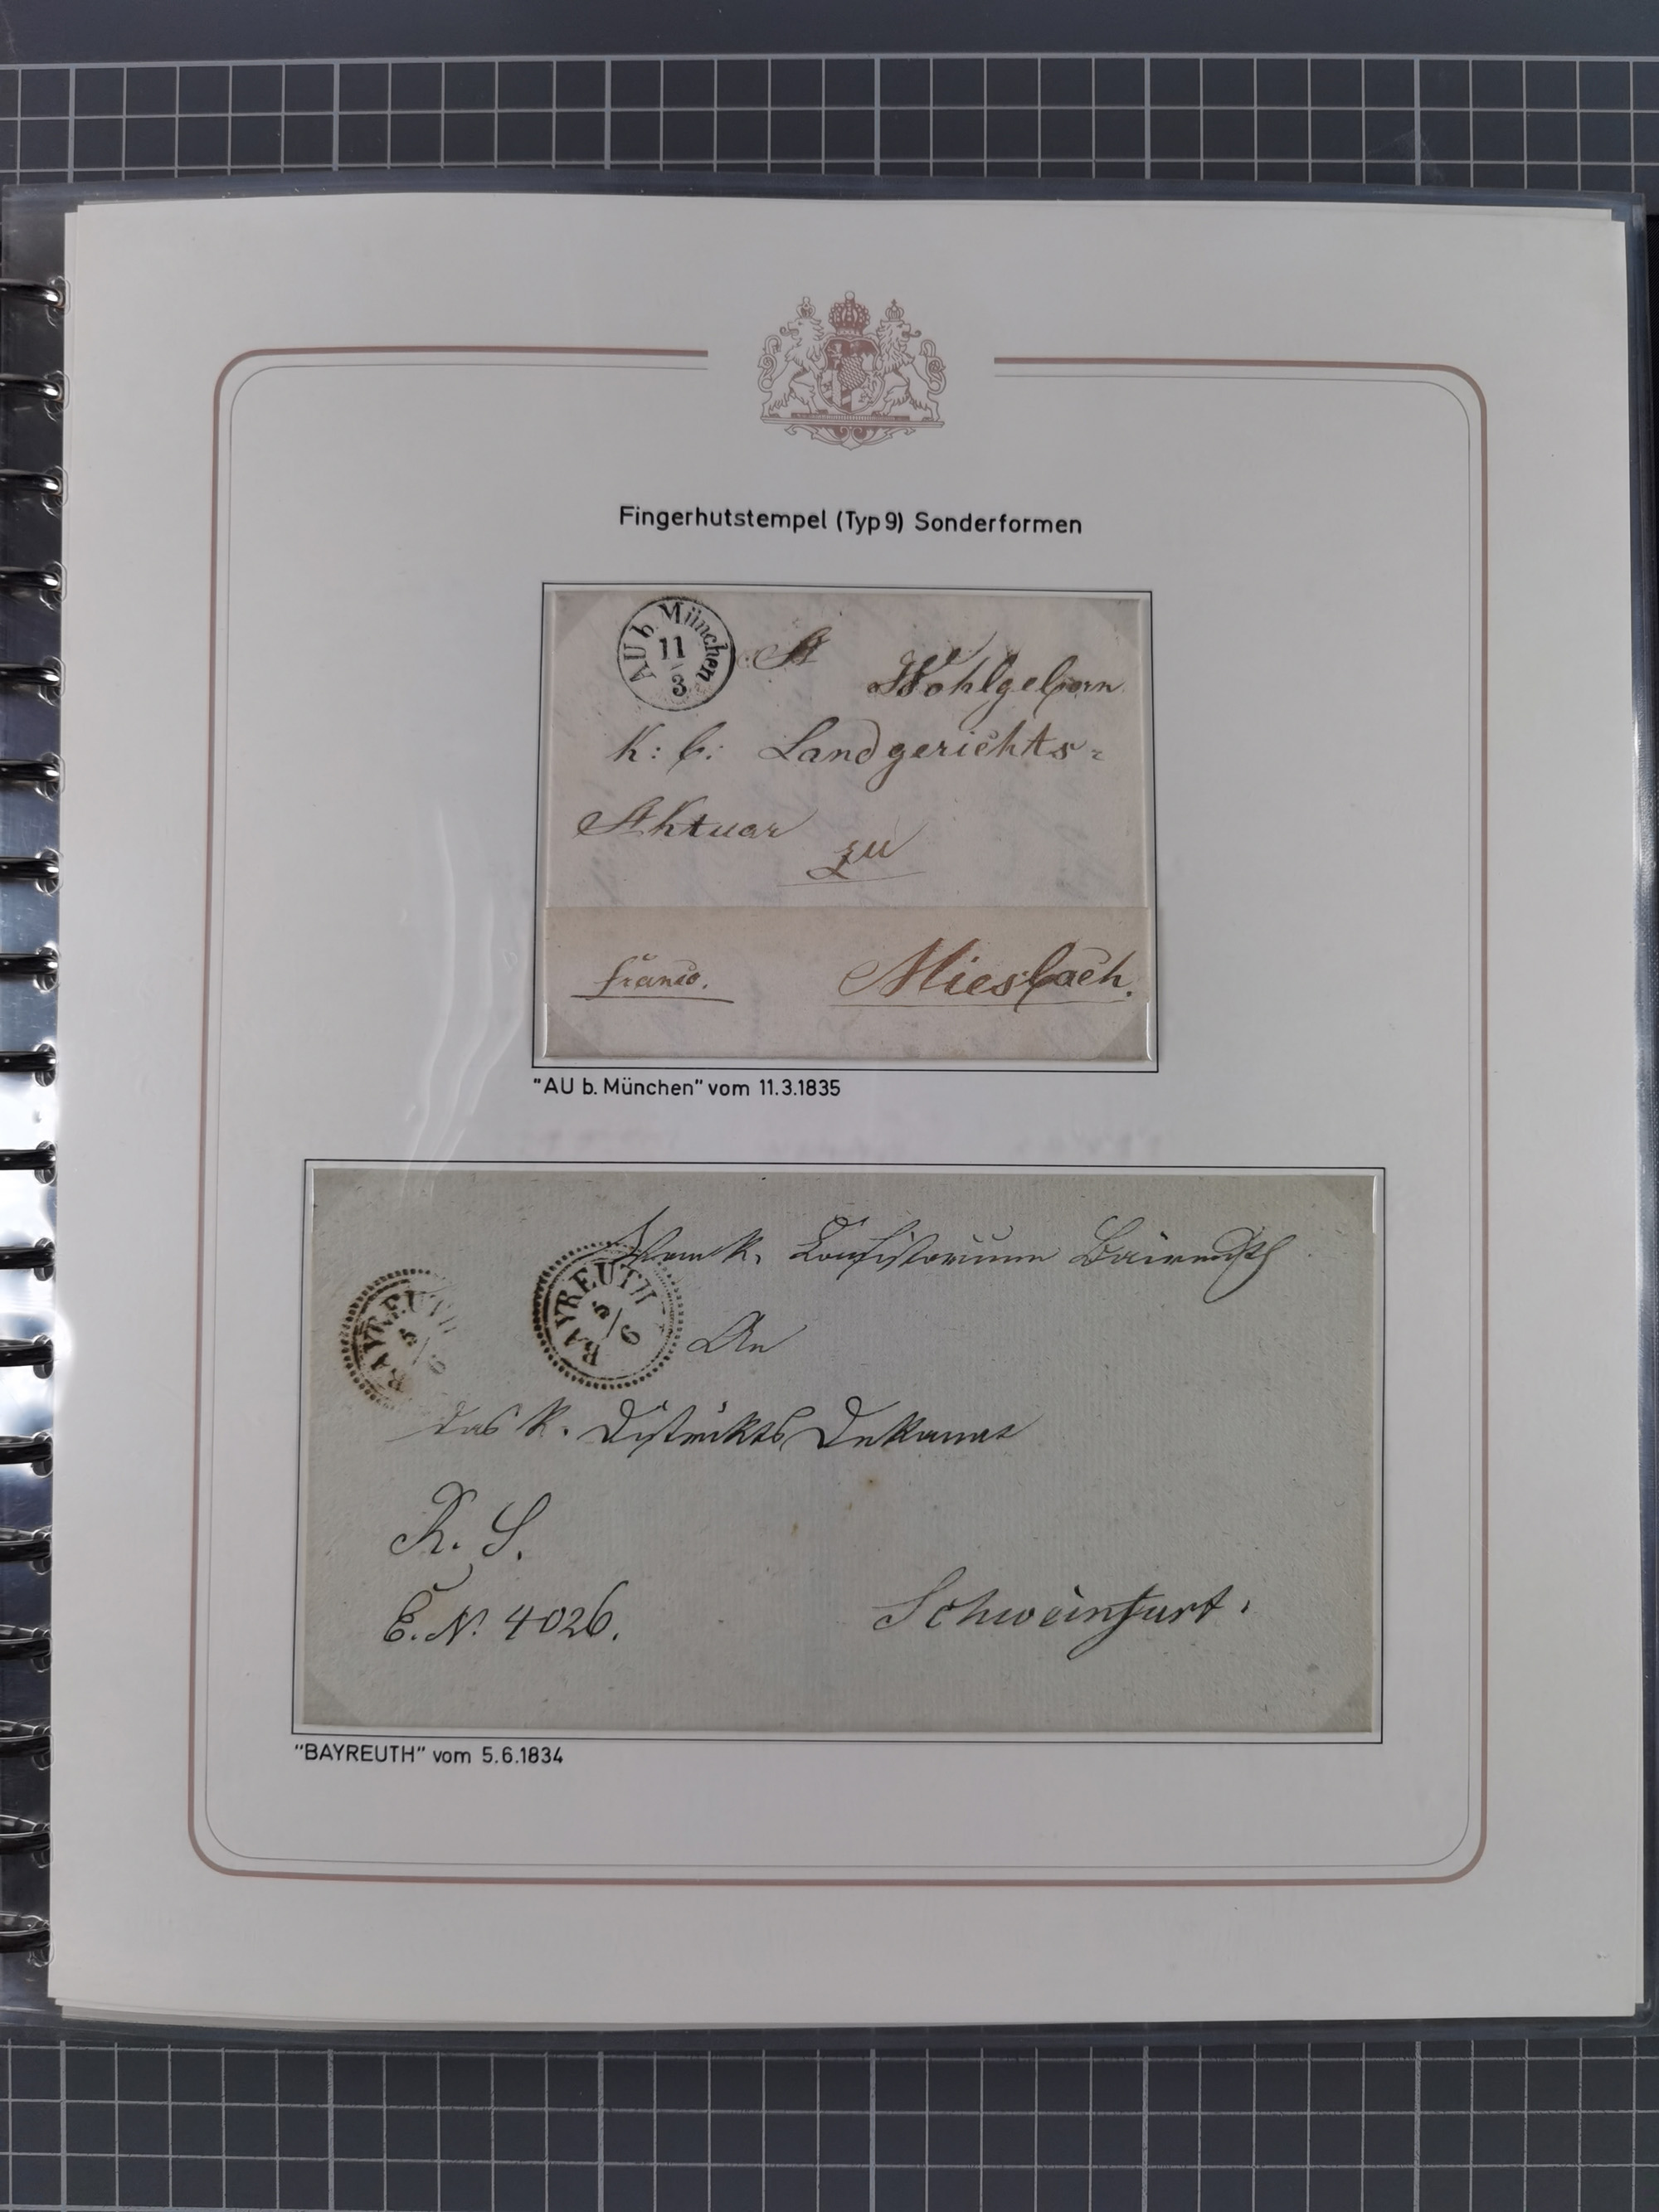 Fingerhutstempel (Typ 9) Sonderformen
AU b. München
11
3
Wohlgeborn
K: b: Landgerichts=
Aktuar
zu
franco.
Miesbach.
"AU b. München" vom 11.3.1835
Vom K. Consistorium Baireuth
BAYREUTH
5/6
BAYREUTH
5/6
An
das K. Distrikts Dekanat
R. S.
E. N. 4026.
Schweinfurt.
"BAYREUTH" vom 5.6.1834